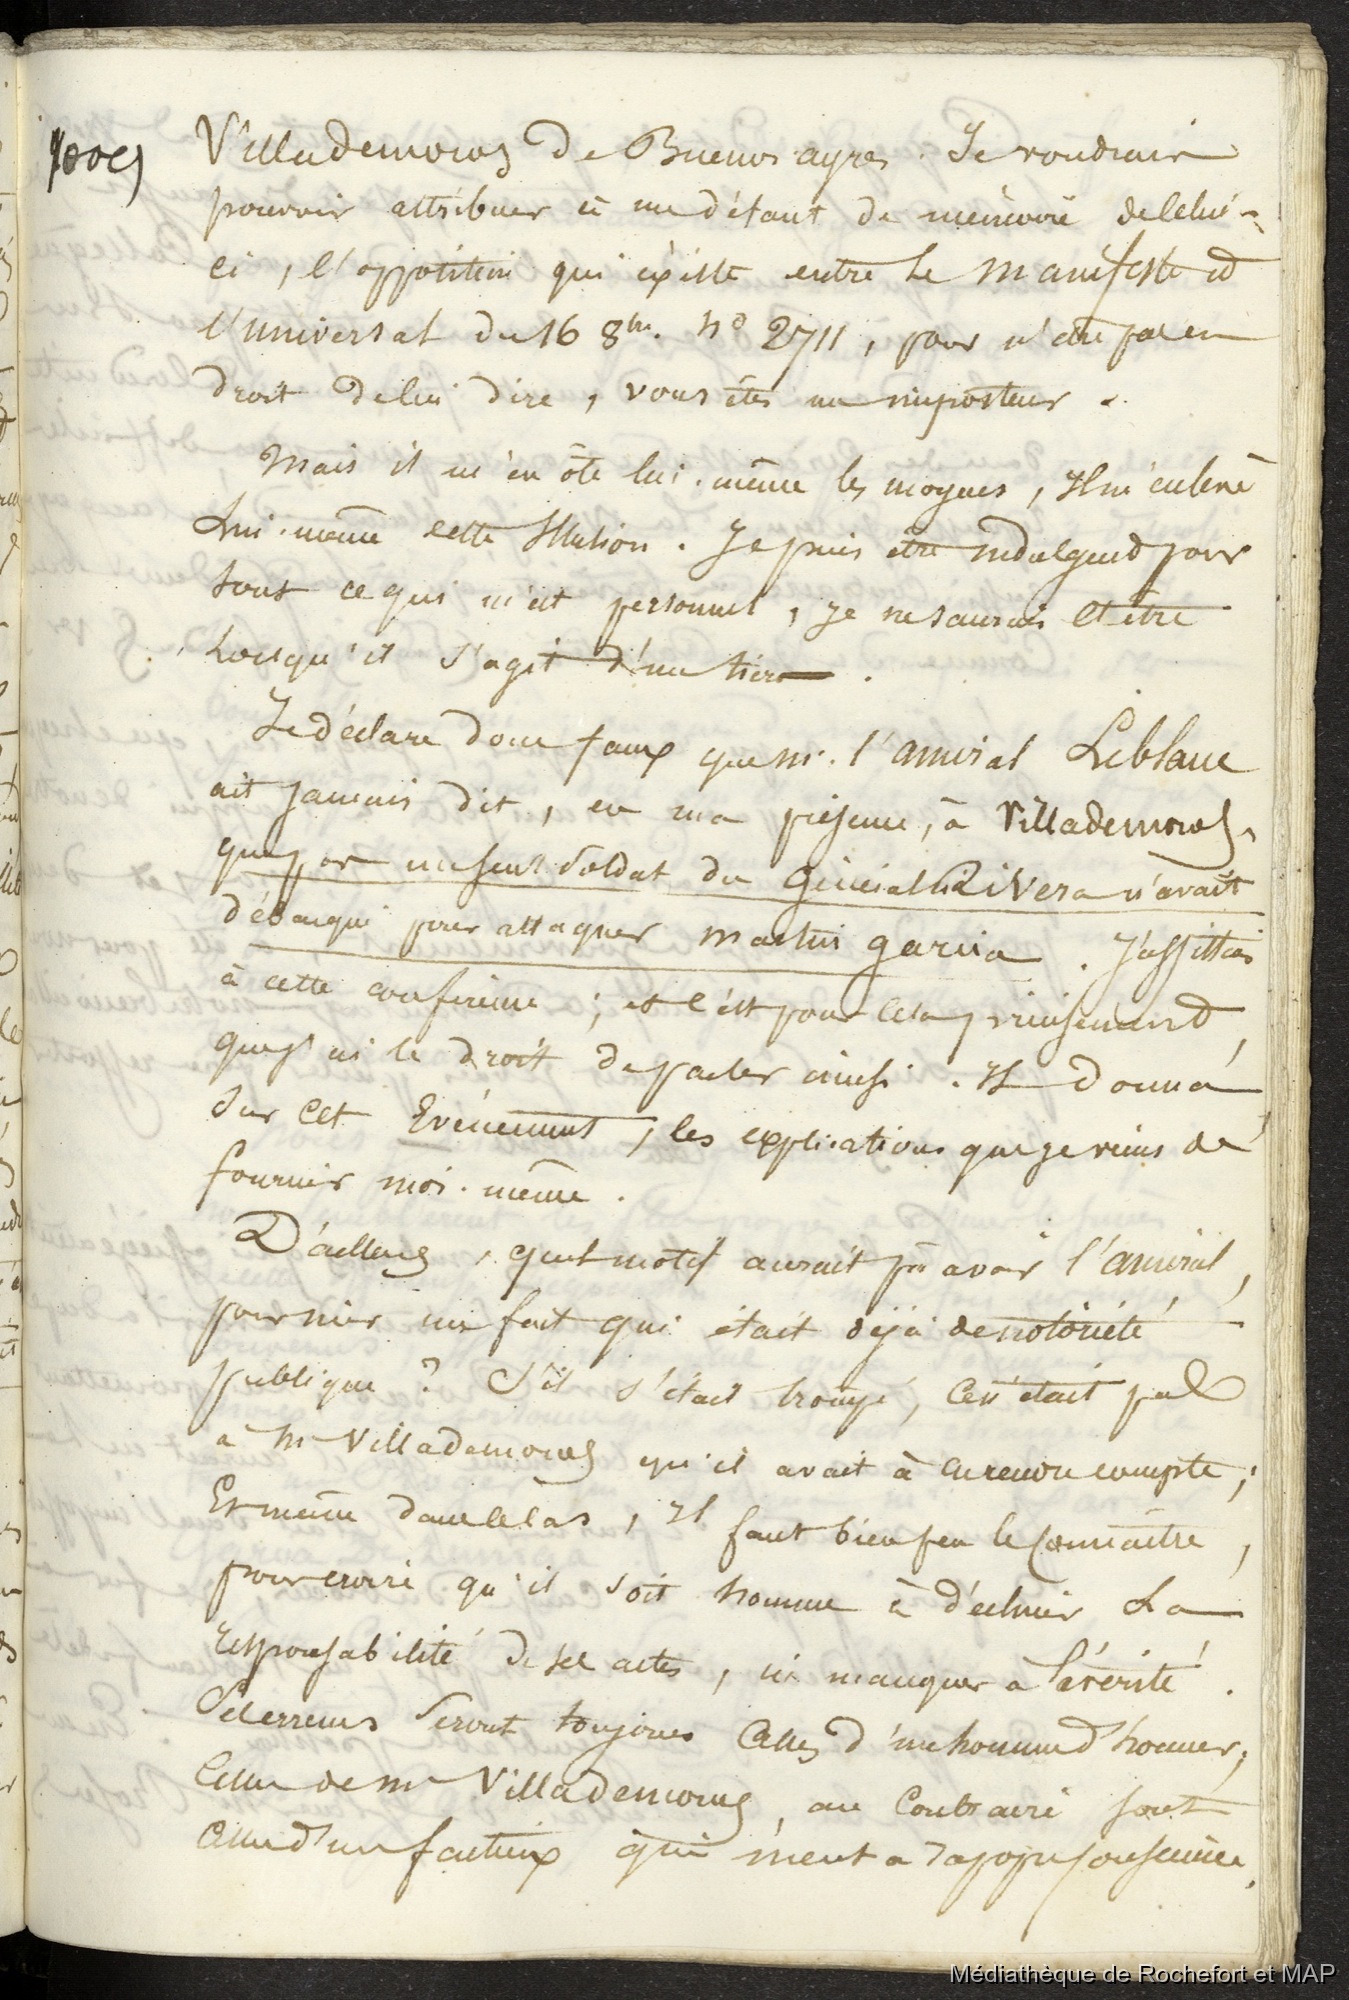 Villademoros de Buenos ayres. Je voudrais
pouvoir attribuer à un défaut de mémoire de celui-
ci, l'opposition qui existe entre le manifeste et
l'universal du 16 8bre. no 2711, pour n'être pas en
droit de lui dire, vous êtes un imposteur.
Mais il m'en ôte lui-même les moyens, Il m'enlève
Lui-même cette Illusion. Je puis être indulgent pour
tout ce qui m'est personnel, je ne saurais L'être
Lorsqu'il s'agit d'un tiers.
Je déclare donc faux que m. l'amiral Leblanc
ait jamais dit, en ma présence, à Villademoros,
que pas un seul soldat du Général Rivera n'avait
débarqué pour attaquer martin garcia. J'assistais
à cette conférence; et c'est pour cela précisément
que j'ai le droit de parler ainsi. Il donna
sur cet Evénement, les explications que je viens de
fournir moi-même.
D'ailleurs, quel motif aurait pû avoir l'amiral,
pour nier un fait qui était déjà de notoriété
publique? S'il s'était trompé, ce n'était pas
à Mr Villademoros qu'il avait à en rendre compte;
Et même dans ce cas, il faut bien peu le connaître,
pour croire qu'il soit homme à décliner La
responsabilité de ses actes, ni manquer à la vérité.
Ses erreurs seront toujours celles d'un homme d'honneur;
celles de mr Villademoros, au contraire sont
celles d'un factieux qui ment a sa propre conscience.
Médiathèque de Rochefort et MAP